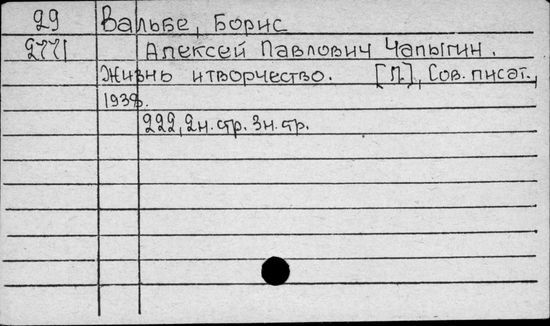 29 Вальбе, Борис
2771 Алексей Павлович Чапыгин.
Жизнь и творчество. [Л.], Сов. писат.,
1938.
222, 2н. стр. 3н. тр.